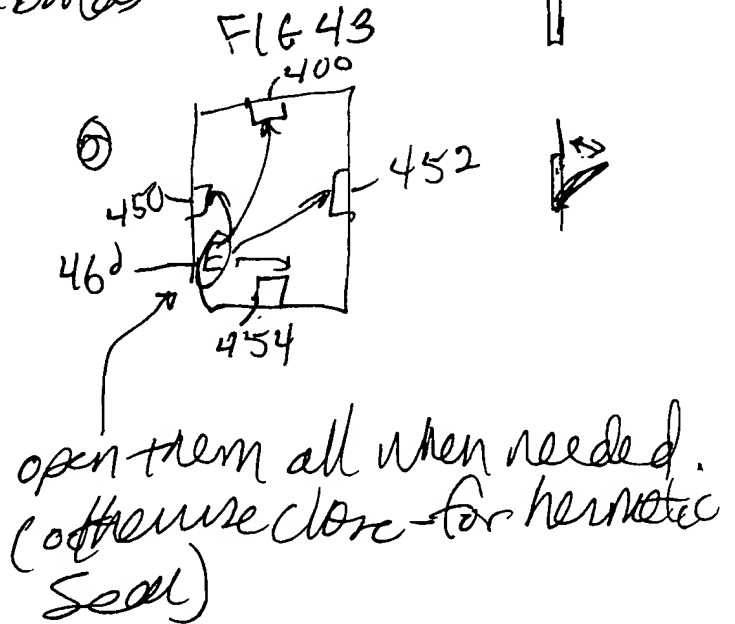 FIG 43
400
6
452
450
E
46d
454
open them all when needed.
(otherwise close for hermetic
seal)